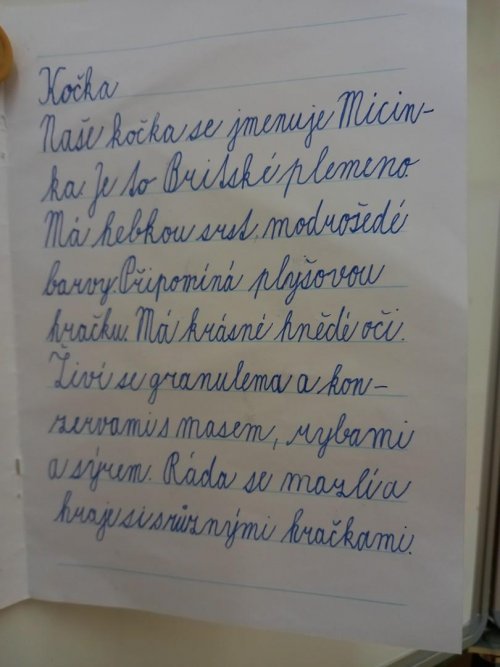 Kočka
Naše kočka se jmenuje Micin-
ka. Je to Britské plemeno.
Má hebkou srst, modrošedé
barvy. Připomíná plyšovou
hračku. Má krásné hnědé oči.
Živí se granulema a kon-
zervami s masem, rybami
a sýrem. Ráda se mazlí a
hraje si s různými hračkami.